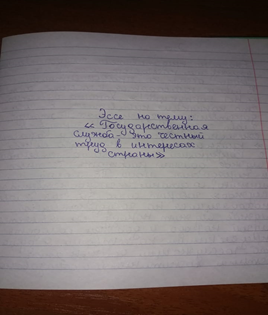 Эссе на тему:
«Государственная
служба - это честный
труд в интересах
страны»